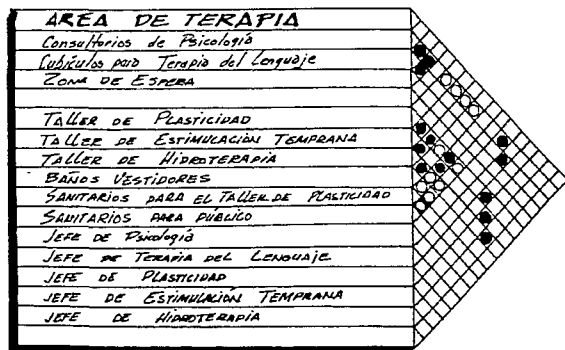 AREA DE TERAPIA
Consultorios de Psicología
Cubículos para Terapia del Lenguaje
ZONA DE ESPERA
TALLER DE PLASTICIDAD
TALLER DE ESTIMULACIÓN TEMPRANA
TALLER DE HIDROTERAPIA
BAÑOS VESTIDORES
SANITARIOS PARA EL TALLER DE PLASTICIDAD
SANITARIOS PARA PÚBLICO
JEFE DE Psicología
JEFE DE TERAPIA DEL LENGUAJE
JEFE DE PLASTICIDAD
JEFE DE ESTIMULACIÓN TEMPRANA
JEFE DE HIDROTERAPIA